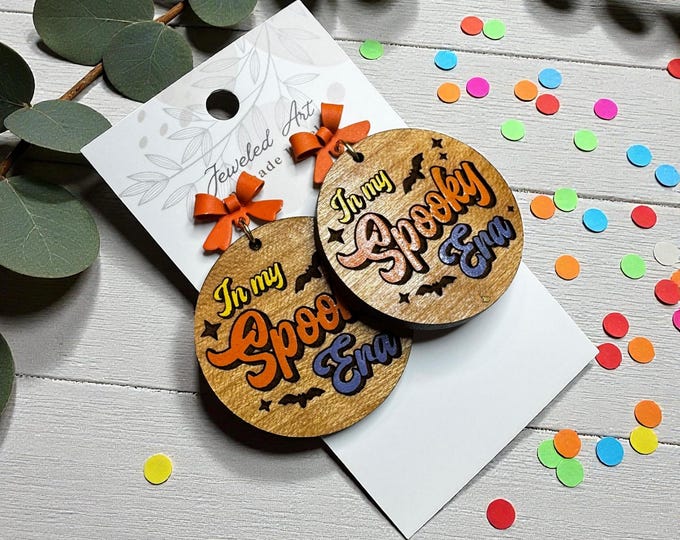 Jeweled Art
In my
Spooky
Era
In my
Spoo
Era